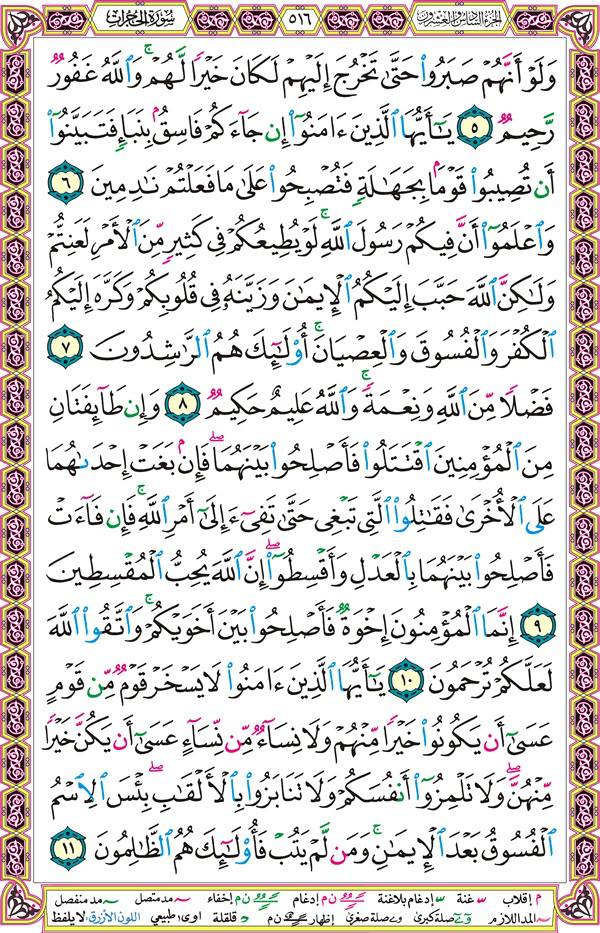 الجزء السادس والعشرون ٥١٦ سورة الحجرات
وَلَوْ أَنَّهُمْ صَبَرُوا۟ حَتَّىٰ تَخْرُجَ إِلَيْهِمْ لَكَانَ خَيْرًا لَّهُمْ ۚ وَٱللَّهُ غَفُورٌ
رَّحِيمٌ ٥ يَـٰٓأَيُّهَا ٱلَّذِينَ ءَامَنُوٓا۟ إِن جَآءَكُمْ فَاسِقٌۢ بِنَبَإٍ فَتَبَيَّنُوٓا۟
أَن تُصِيبُوا۟ قَوْمًۢا بِجَهَـٰلَةٍ فَتُصْبِحُوا۟ عَلَىٰ مَا فَعَلْتُمْ نَـٰدِمِينَ ٦
وَٱعْلَمُوٓا۟ أَنَّ فِيكُمْ رَسُولَ ٱللَّهِ ۚ لَوْ يُطِيعُكُمْ فِى كَثِيرٍ مِّنَ ٱلْأَمْرِ لَعَنِتُّمْ
وَلَـٰكِنَّ ٱللَّهَ حَبَّبَ إِلَيْكُمُ ٱلْإِيمَـٰنَ وَزَيَّنَهُۥ فِى قُلُوبِكُمْ وَكَرَّهَ إِلَيْكُمُ
ٱلْكُفْرَ وَٱلْفُسُوقَ وَٱلْعِصْيَانَ ۚ أُو۟لَـٰٓئِكَ هُمُ ٱلرَّٰشِدُونَ ٧
فَضْلًا مِّنَ ٱللَّهِ وَنِعْمَةً ۚ وَٱللَّهُ عَلِيمٌ حَكِيمٌ ٨ وَإِن طَآئِفَتَانِ
مِنَ ٱلْمُؤْمِنِينَ ٱقْتَتَلُوا۟ فَأَصْلِحُوا۟ بَيْنَهُمَا ۖ فَإِنۢ بَغَتْ إِحْدَىٰهُمَا
عَلَى ٱلْأُخْرَىٰ فَقَـٰتِلُوا۟ ٱلَّتِى تَبْغِى حَتَّىٰ تَفِىٓءَ إِلَىٰٓ أَمْرِ ٱللَّهِ ۚ فَإِن فَآءَتْ
فَأَصْلِحُوا۟ بَيْنَهُمَا بِٱلْعَدْلِ وَأَقْسِطُوٓا۟ ۖ إِنَّ ٱللَّهَ يُحِبُّ ٱلْمُقْسِطِينَ
٩ إِنَّمَا ٱلْمُؤْمِنُونَ إِخْوَةٌ فَأَصْلِحُوا۟ بَيْنَ أَخَوَيْكُمْ ۚ وَٱتَّقُوا۟ ٱللَّهَ
لَعَلَّكُمْ تُرْحَمُونَ ١٠ يَـٰٓأَيُّهَا ٱلَّذِينَ ءَامَنُوا۟ لَا يَسْخَرْ قَوْمٌ مِّن قَوْمٍ
عَسَىٰٓ أَن يَكُونُوا۟ خَيْرًا مِّنْهُمْ وَلَا نِسَآءٌ مِّن نِّسَآءٍ عَسَىٰٓ أَن يَكُنَّ خَيْرًا
مِّنْهُنَّ ۖ وَلَا تَلْمِزُوٓا۟ أَنفُسَكُمْ وَلَا تَنَابَزُوا۟ بِٱلْأَلْقَـٰبِ ۖ بِئْسَ ٱلِٱسْمُ
ٱلْفُسُوقُ بَعْدَ ٱلْإِيمَـٰنِ ۚ وَمَن لَّمْ يَتُبْ فَأُو۟لَـٰٓئِكَ هُمُ ٱلظَّـٰلِمُونَ ١١
م إقلاب غنة إدغام بلاغنة ن م إدغام ن م إخفاء مد متصل مد منفصل
المد اللازم صلة كبرى صلة صغرى إظهار ن م قلقلة اوى؛ طبيعي اللون الأزرق؛ لايلفظ